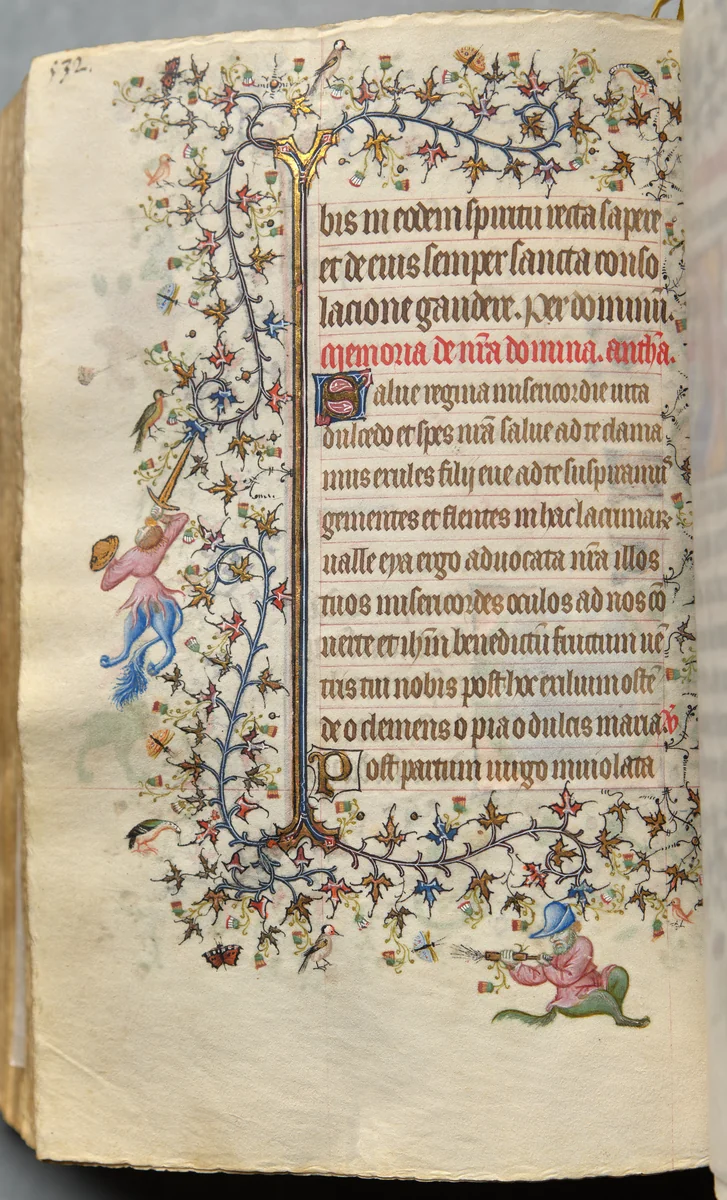 532.
bis in eodem spiritu recta sapere
et de eius semper sancta conso
lacione gaudere. Per dominū.
Memoria de nr̄a domina. anth̄a.
Salue regina misericordie uita
dulcedo et spes nr̄a salue ad te clama
mus exules filij eue ad te suspiramꝰ
gementes et flentes in hac lacrimar
ualle eya ergo aduocata nr̄a illos
tuos misericordes oculos ad nos cō
uerte et ih̄m benedictū fructum uē
tris tui nobis post hoc exilium ostē
de o clemens o pia o dulcis maria ℣
Post partum uirgo inuiolata